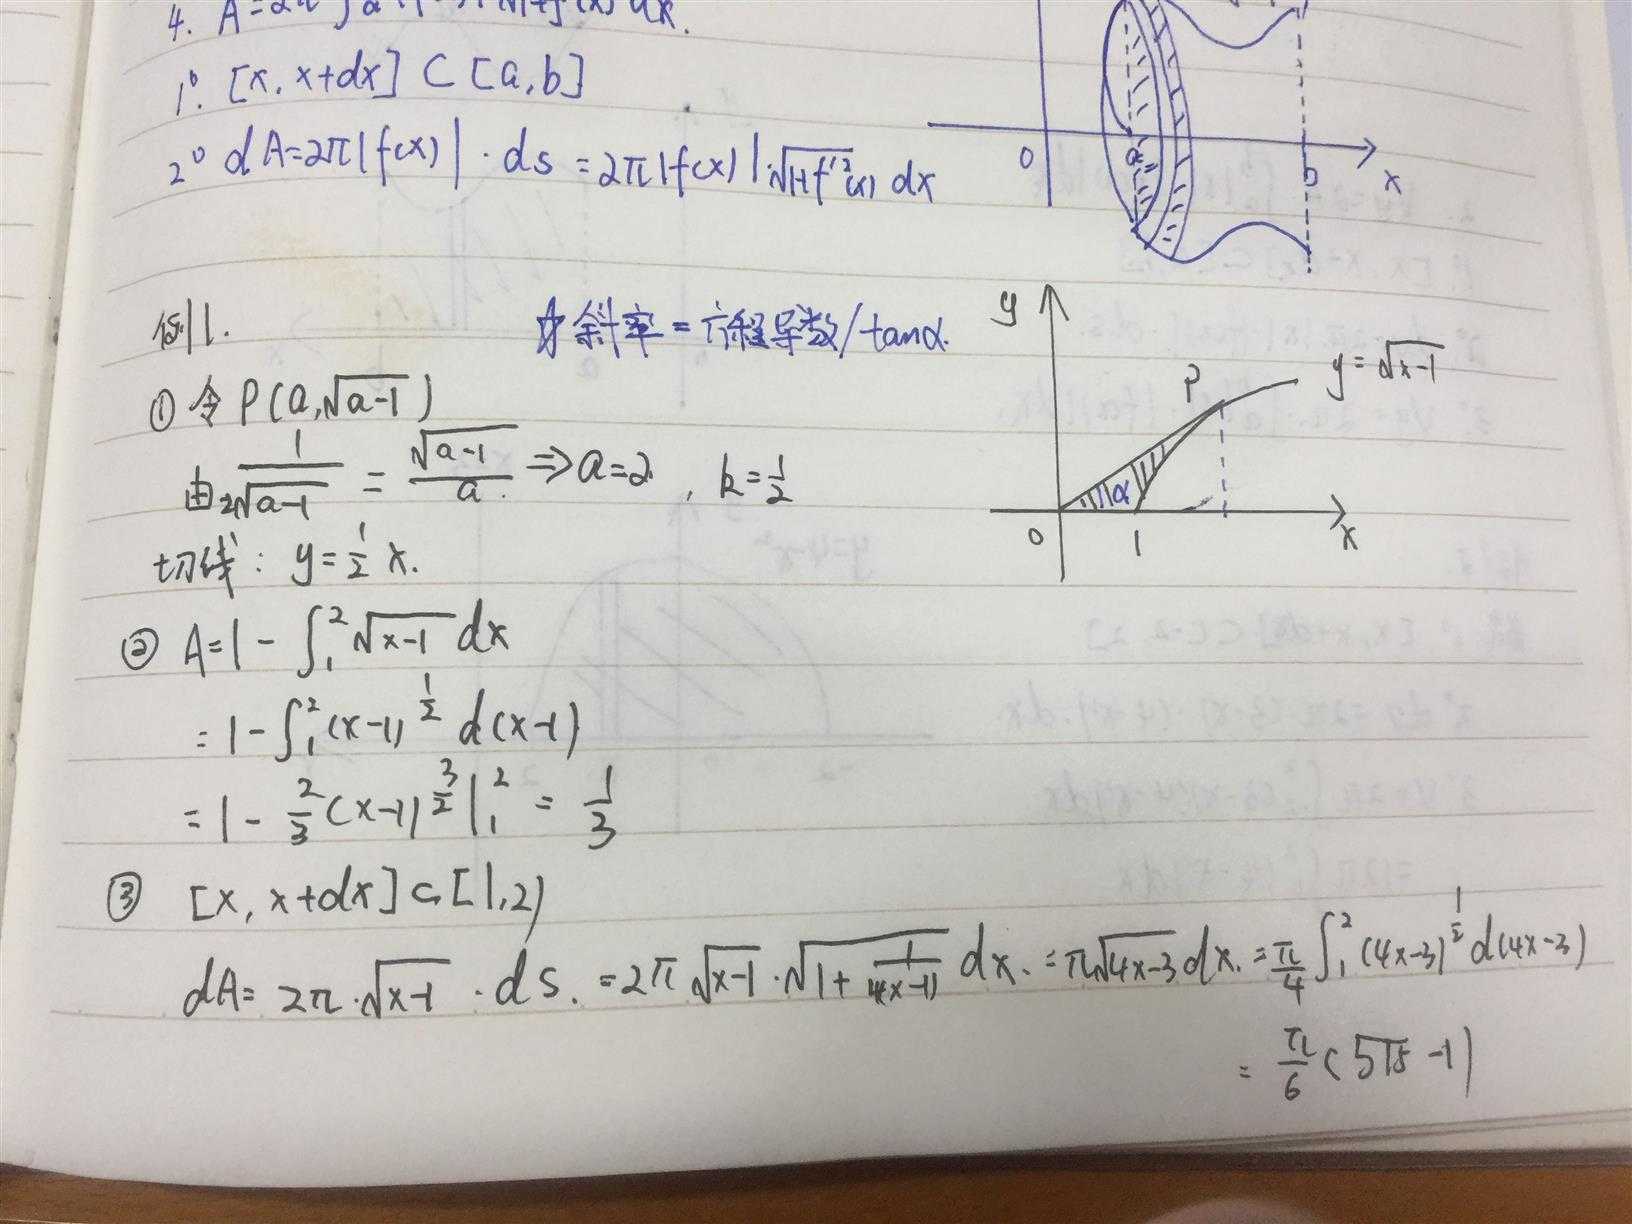 4. A=2π∫
1°. [x, x+dx] ⊂ [a,b]
2° dA=2π|f(x)|·ds=2π|f(x)|√1+f'²(x) dx
0 a b x
例1.
☆斜率=方程导数/tanα.
y P y=√x-1
α
0 1 x
① 令P(a,√a-1)
由 1/2√a-1 = √a-1/a ⇒ a=2, k=1/2
切线: y=1/2 x.
② A=1-∫₁²√x-1 dx
=1-∫₁²(x-1)^1/2 d(x-1)
=1-2/3(x-1)^3/2|₁² = 1/3
③ [x, x+dx]⊂[1,2]
dA= 2π·√x-1 ·ds. =2π√x-1·√1+1/4(x-1) dx.=π√4x-3 dx.=π/4∫₁²(4x-3)^1/2 d(4x-3)
= π/6(5√5-1)